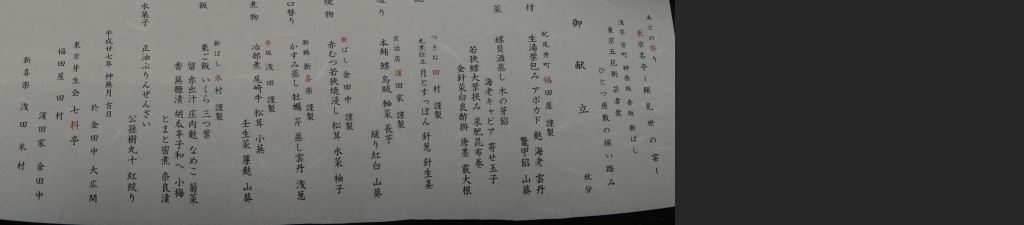 あとの祭り
東京名亭〜顔見世の宴〜
浅草 芳町 神楽坂 赤坂 新ばし
東京五花街 芸者衆
ひとつ座敷の揃い踏み
秋分
御献立
付
紀尾井町 福田屋 謹製
生湯葉包み アボカド 麩 海老 雲丹
鼈甲餡 山葵
菜
媒貝酒蒸し 木の芽餡
海老キャビア 寄せ玉子
若狭鰈大葉挟み 求肥昆布巻
金針菜白良酢掛 唐墨 霰大根
つきぢ 田村 謹製
丸煮仕立 月とすっぽん 針葱 針生姜
り
玄冶店 濱田家 謹製
本鮪 鰈 烏賊 軸菜 長芋
縒り紅白 山葵
焼物
新ばし 金田中 謹製
赤むつ若狭焼浸し 松茸 水菜 柚子
口替り
新橋 新喜楽 謹製
かすみ蒸し 牡蠣 芹 蒸し雲丹 浅葱
煮物
赤坂 浅田 謹製
冶部煮 尾崎牛 松茸 小蕪
壬生菜 簾麩 山葵
飯
新ばし 米村 謹製
栗ご飯 いくら 三つ葉
留 赤出汁 庄内麩 なめこ 菊菜
香 蕪糠漬 胡瓜辛子和へ 小梅
とまと密煮 奈良漬
水菓子
正油ぷりんぜんざい
公孫樹丸十 紅絞り
平成廿七年 神無月 吉日
於 金田中 大広間
東京芽生会 七料亭
福田屋 田村
濱田家 金田中
新喜楽 浅田 米村